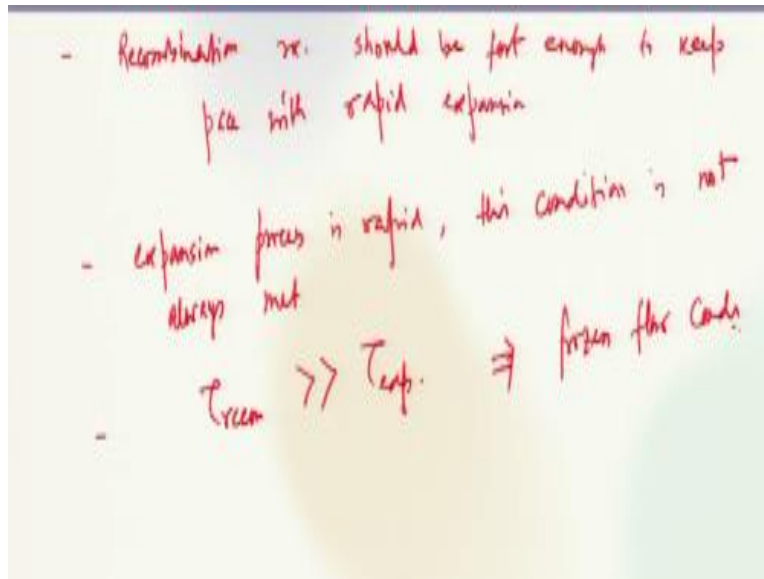 - Recombination rx. should be fast enough to keep
pace with rapid expansion
- expansion process is rapid, this condition is not
always met
- τrecom >> τexp. ⇒ frozen flow Condn.